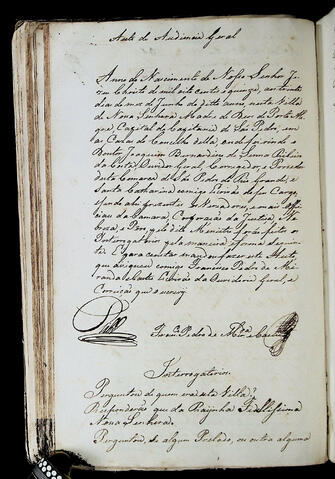 Auto de Audiencia Geral
Anno do Nascimento de Nosso Senhor Je-
zus Christo de mil oito centos e quinze, aos trinta
dias do mez de Junho do dito anno, nesta Villa
de Nossa Senhora Madre de Deos de Porto Ale-
gre Capital da Capitania de São Pedro, em
as Cazas do Concelho della, onde foi vindo o
Doutor Joaquim Bernardino de Senna Ribeiro
da Costa, Ouvidor Geral, e Corregedor, e Provedor
desta Comarca de São Pedro do Rio grande, e
Santa Catharina comigo Escrivão de seu Cargo
sendo ahi prezentes os Vereadores, e mais offi-
ciaes da Camara, Corporação da Justiça, No-
breza, e Povo, pelo dito Ministro forão feitos os
Interrogatorios pela maneira e forma seguin-
te. E para constar mandou fazer este Auto,
que assignou comigo Francisco Pedro de Mi-
randa e Castro Escrivão da Ouvidoria Geral, e
Correição que o escrevy
Franco. Pedro de Mirda. e Castro
Interrogatorios.
Perguntou de quem era esta Villa?
Responderão que da Raynha Fidellissima
Nossa Senhora.
Perguntou, se algum Prelado, ou outra alguma